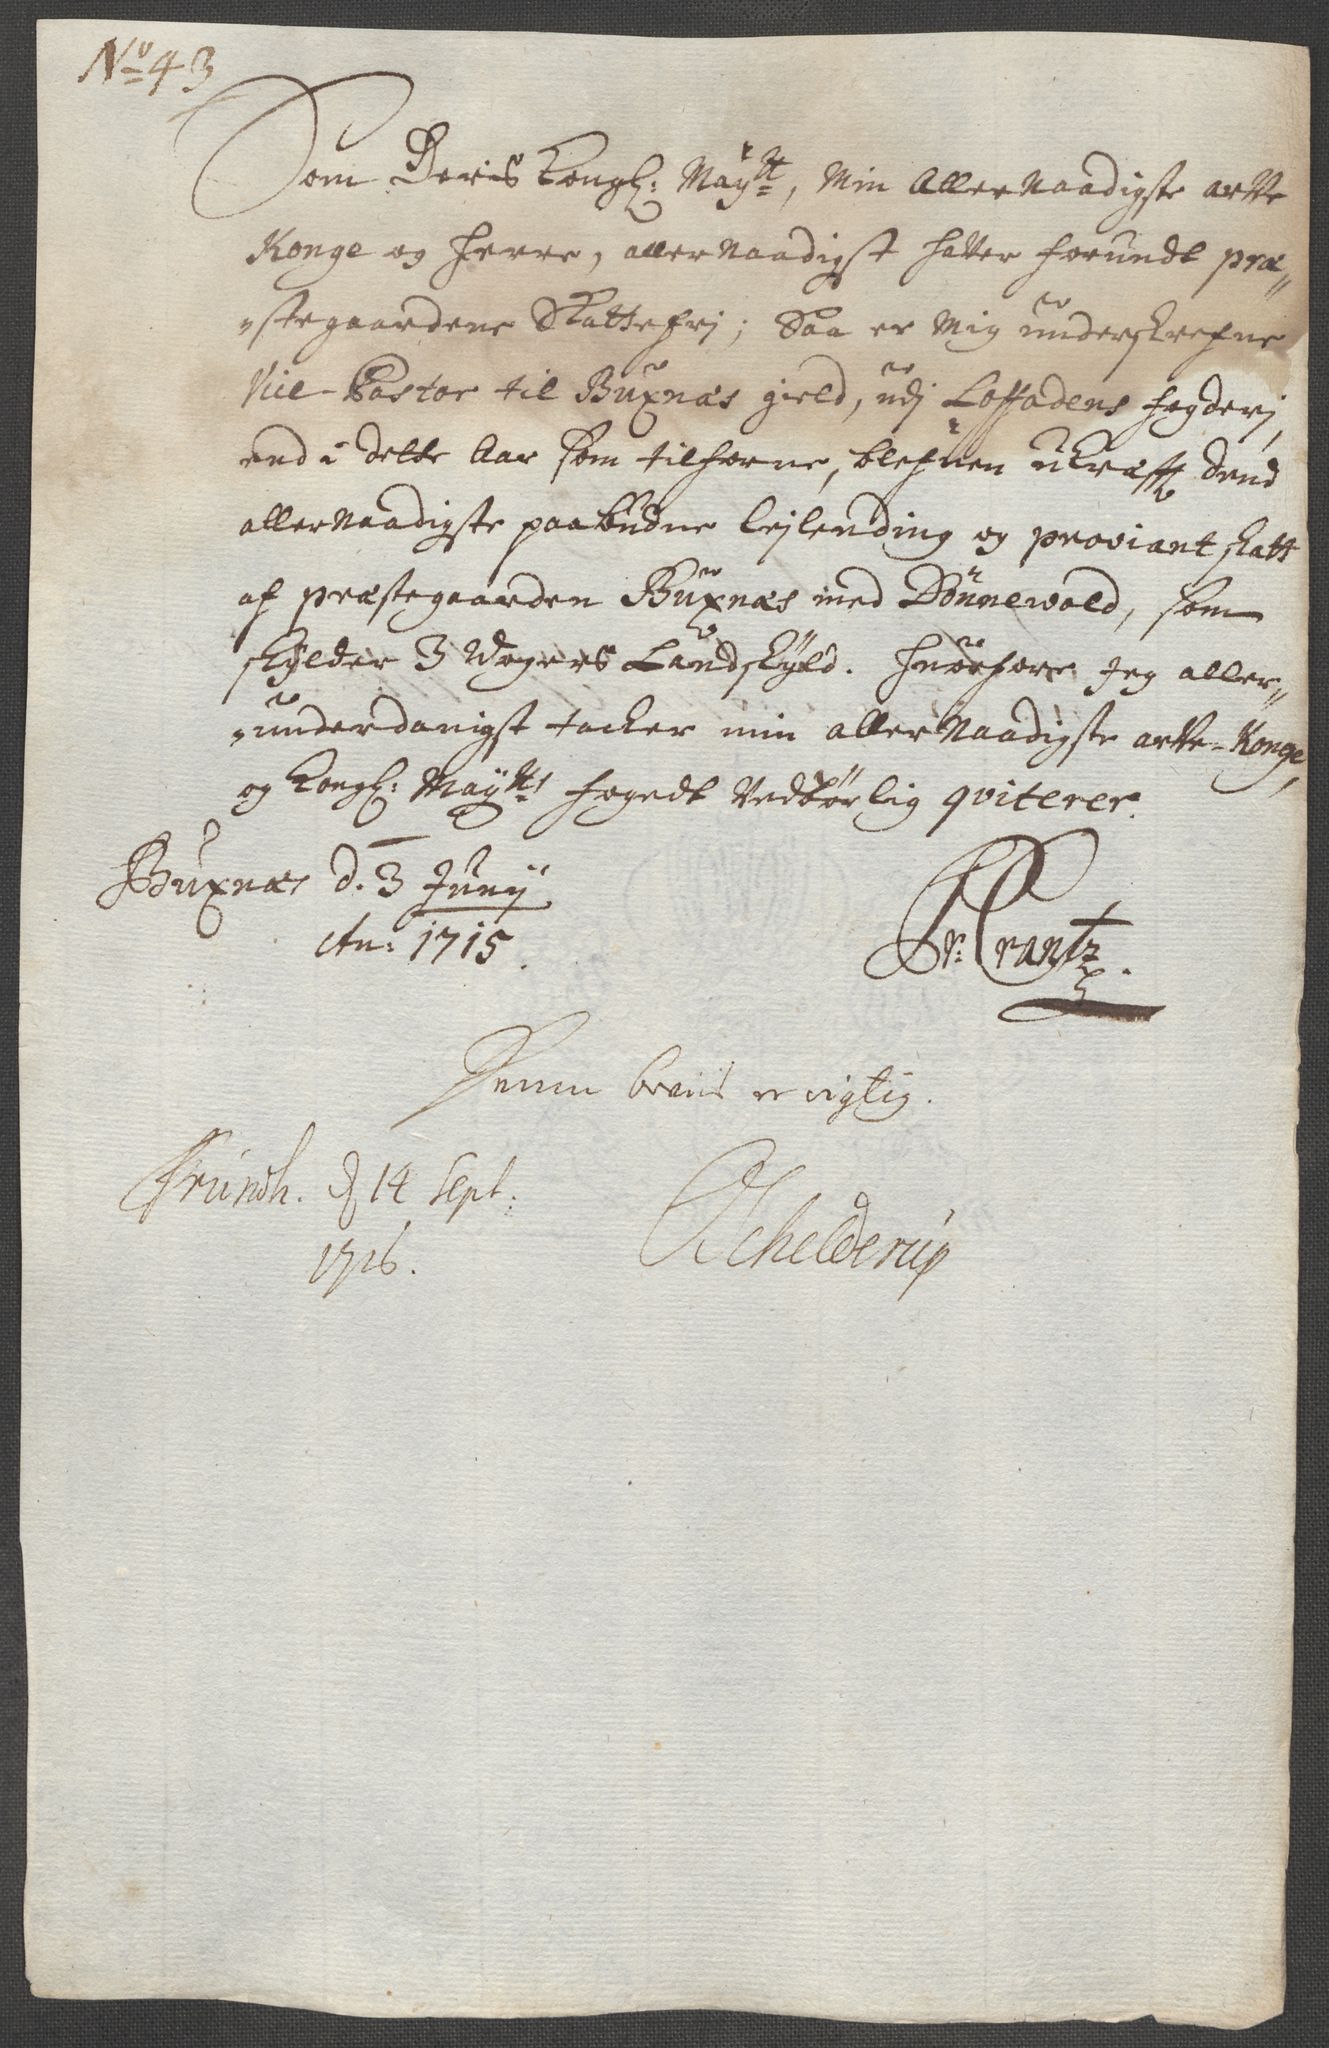 No 43
Som Deris Kongl: Mayst:tt, Min Aller Naadigste arVe
Konge og Herre, allerNaadigst haVer forundt præ-
-stegaardene Skattefrj; Saa er Mig underskrefne
Vice-Pastor til Buxnæs gield, udj Loffodens fogderj,
end i dette Aar som tilforne, blefuen ukræfft dend
allerNaadigste paabudne leylending og proviant skatt
af præstegaarden Buxnæs med Dønnewold, som
skylder 3 Vogers Landskyld. Huorfore Jeg aller-
-underdanigst tacker min allerNaadigste arVe-Konge,
og Kongl: Mayts fogedt Vedbørlig qviterer.
Buxnæs d. 3 Junij
An: 1715.
Fr: Crantz.
Denne beviis er rigtig.
Trundh. d 14 Sept:
1716.
Schelderup